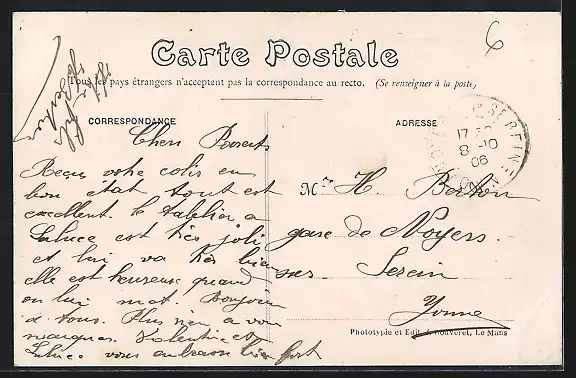 6
Carte Postale
Tous les pays étrangers n'acceptent pas la correspondance au recto. (Se renseigner à la poste)
CORRESPONDANCE
ADRESSE
17
8-10
06
Chers Parents
Reçu votre colis en
bon état tout est
excellent. le tablier a
est très joli
et lui va très bien
elle est heureuse quand
on lui met. Bonjour
à tous. Plus rien a vous
marquer. Valentin et
vous embrasse bien fort
Mr H. Berthon
gare de Noyers.
sur Serein
Yonne
Phototypie et Edit. J. Bouveret, Le Mans